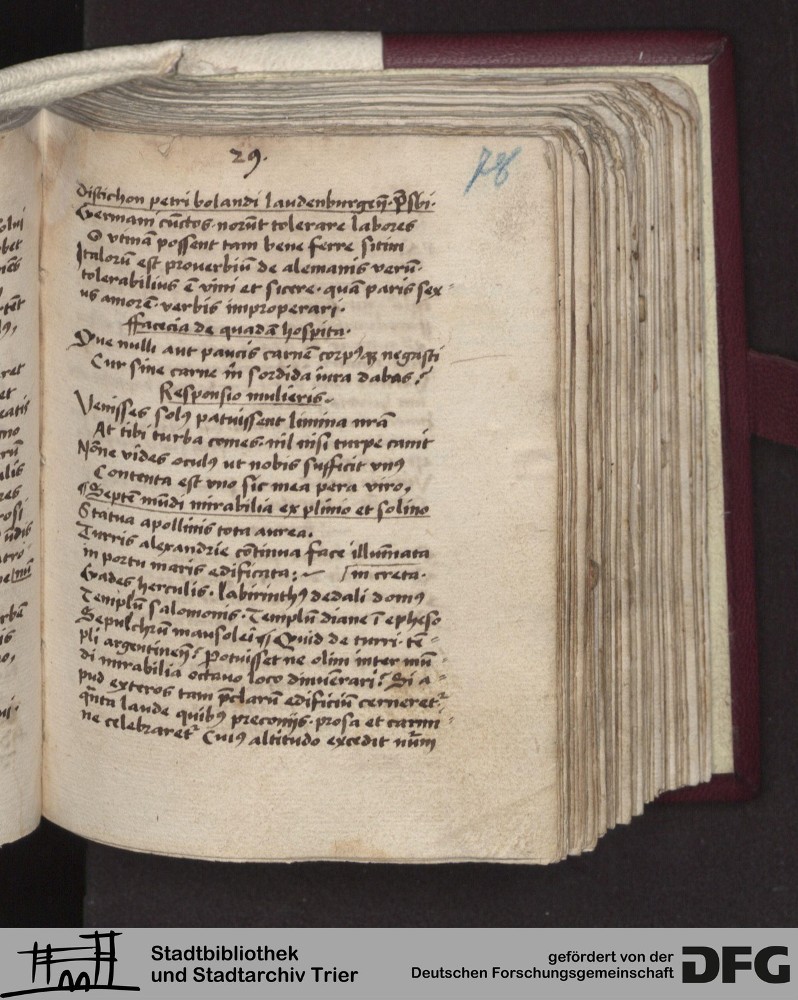 29.
78
Distichon petri bolandi laudenburgeñ. p̃sbi.
Germani cũctos norũt tolerare labores
O vtinã possent tam bene ferre sitim
Italorũ est proverbiũ de alemanis verũ.
tolerabilius ẽ vini et sicere. quã paris sex-
us amorẽ. verbis improperari.
ffacecia de quadã hospita.
Que nulli aut paucis carnẽ corpꝰqꝫ negasti
Cur sine carne m̃ sordida iura dabas?
Responsio mulieris.
Venisses solꝰ patuissent limina nr̃a
At tibi turba comes. nil nisi turpe canit
Nõne vides oculꝰ ut nobis sufficit vnꝰ
Contenta est vno sic mea pera viro.
¶ Septẽ mũdi mirabilia ex plinio et solino
Statua apollinis tota aurea.
Turris alexandrie cõtinua face illuminata
in portu maris edificata: ⌈in creta.
Gades herculis. labirinthꝰ dedali domꝰ
Templũ salomonis. Templũ diane ĩ epheso
Sepulchrũ mausolei ¶ Quid de turri. tẽ-
pli argentineñ? Potuisset ne olim inter mũ-
di mirabilia octavo loco dinũerari? Si a-
pud exteros tam p̃clarũ edificiũ cerneret᷑.
qñta laude quibꝰ preconijs. prosa et carmi-
ne celebraret᷑ Cuiꝰ altitudo excedit
Stadtbibliothek
und Stadtarchiv Trier
gefördert von der
Deutschen Forschungsgemeinschaft
DFG